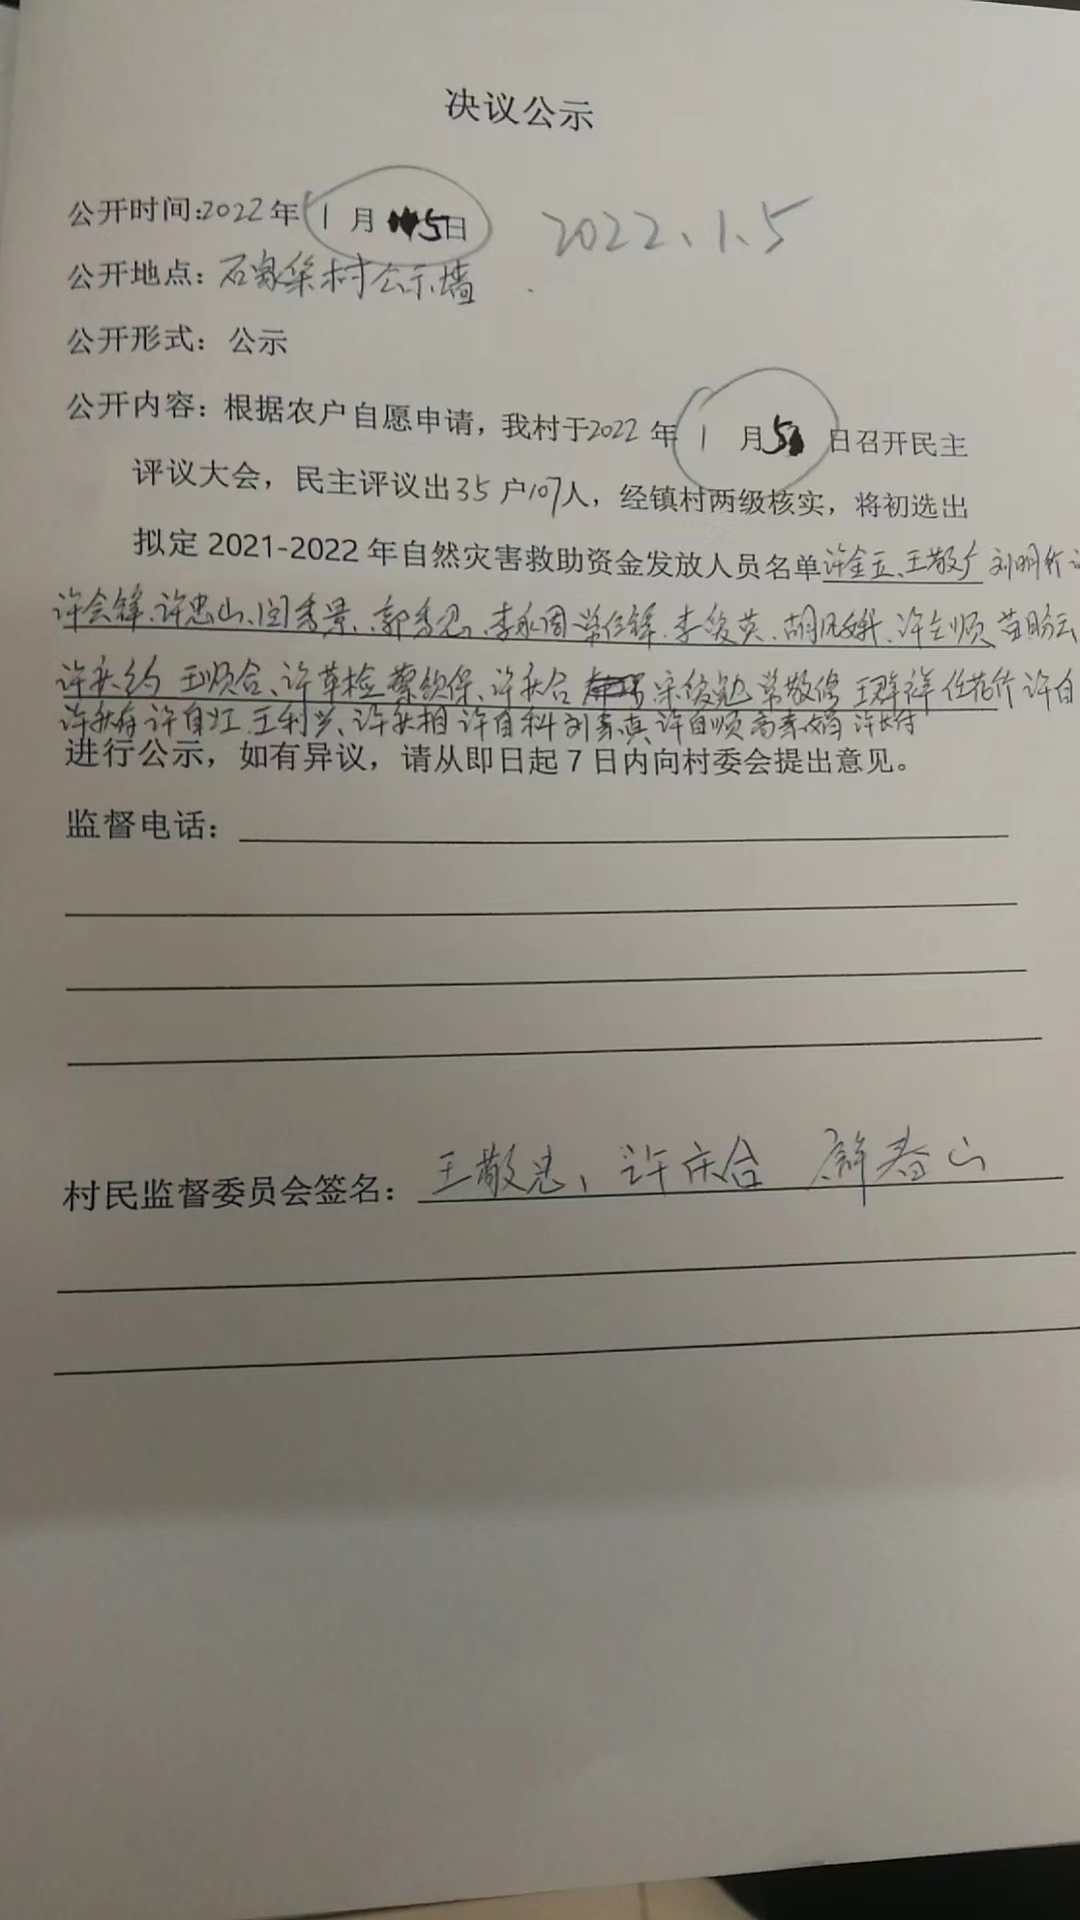 决议公示
公开时间:2022年1月5日 2022.1.5
公开地点：石家渠村公示墙
公开形式：公示
公开内容：根据农户自愿申请，我村于2022年1月5日召开民主
评议大会，民主评议出35户107人，经镇村两级核实，将初选出
拟定2021-2022年自然灾害救助资金发放人员名单许金五、王敬广 刘明
许会锋、许忠山、闫秀景、郭秀恩、李永周 李俊英、胡凤娥、许全顺
许长约 王顺合、许草检 蔡锁保、许长合 宋俊勉 常敬修 王群祥 任花竹 许自
许秋存 许自江 王利兴、许长相 许自科 刘素真 许自顺 高素娟 许长付
进行公示，如有异议，请从即日起7日内向村委会提出意见。
监督电话：
村民监督委员会签名：王敬忠、许庆合 薛春山